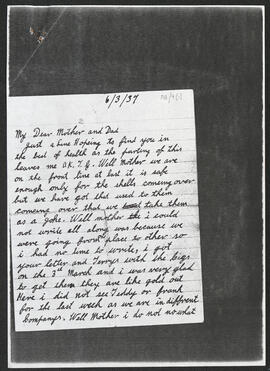 6/3/37
My Dear Mother and Dad
just a line Hopeing to find you in
the best of health as the parting of this
leaves me O.K. T.G. Well Mother we are
on the front line at last it is safe
enough only for the shells comeing over
but we have got that used to them
comeing over that we take them
as a joke. Well mother i could
not write all along was because we
were going from place to other so
i had no time to write, i got
your letter and Terrys with the Cigs
on the 3rd March and i was very glad
to get them they are like gold out
Here i did not see Teddy or frank
for the last week as we are in diffrent
Companys. Well Mother i do not no what